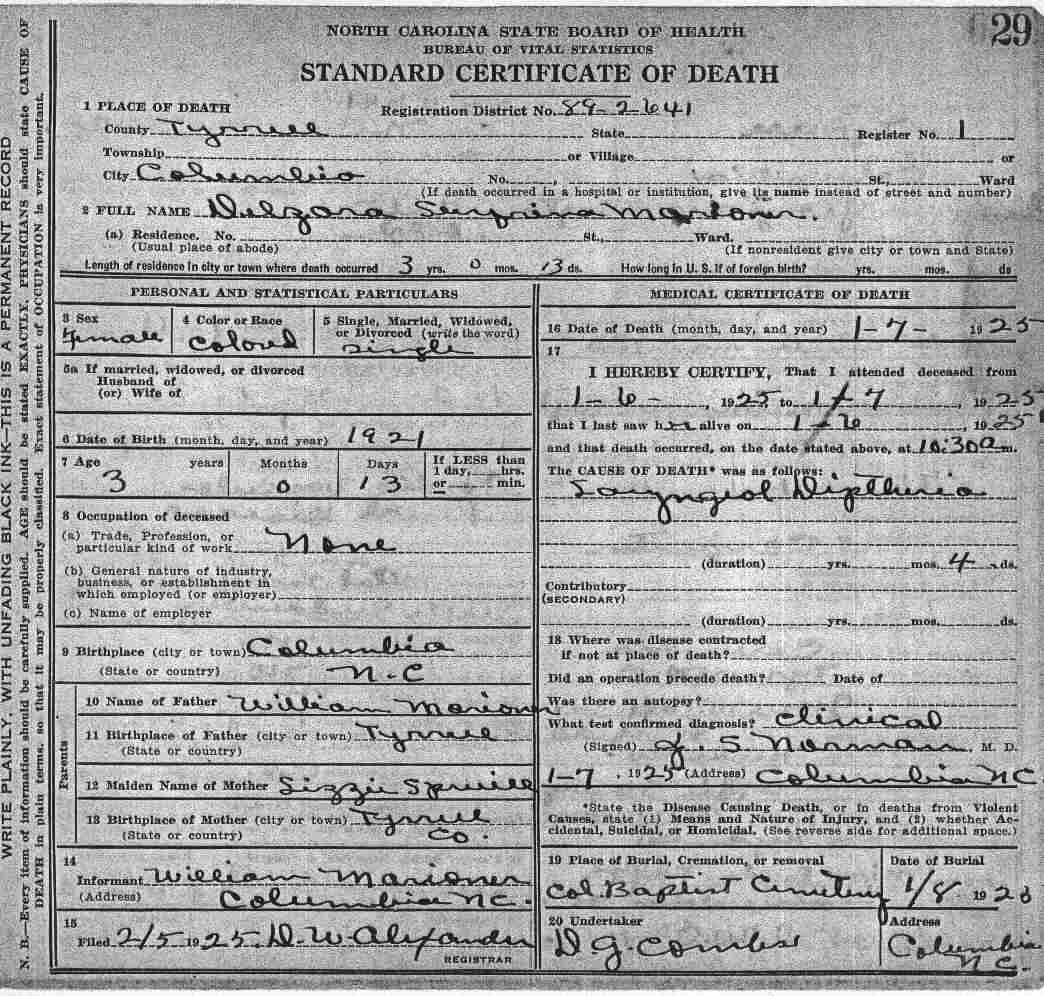 29
NORTH CAROLINA STATE BOARD OF HEALTH
BUREAU OF VITAL STATISTICS
STANDARD CERTIFICATE OF DEATH
1 PLACE OF DEATH Registration District No. 89-2641
County Tyrrell State Register No. 1
Township or Village or
City Columbia No. , St., Ward
(If death occurred in a hospital or institution, give its name instead of street and number)
2 FULL NAME Marioner.
(a) Residence. No. St., Ward.
(Usual place of abode) (If nonresident give city or town and State)
Length of residence in city or town where death occurred 3 yrs. 0 mos. 13 ds. How long in U. S. if of foreign birth? yrs. mos. ds
PERSONAL AND STATISTICAL PARTICULARS
3 Sex
Female
4 Color or Race
Colored
5 Single, Married, Widowed,
or Divorced (write the word)
Single
5a If married, widowed, or divorced
Husband of
(or) Wife of
6 Date of Birth (month, day, and year) 1921
7 Age years Months Days If LESS than
1 day, hrs.
or min.
3 0 13
8 Occupation of deceased
(a) Trade, Profession, or
particular kind of work None
(b) General nature of industry,
business, or establishment in
which employed (or employer)
(c) Name of employer
9 Birthplace (city or town) Columbia
(State or country) N.C
Parents
10 Name of Father William Marioner
11 Birthplace of Father (city or town) Tyrrell
(State or country)
12 Maiden Name of Mother Lizzie Spruill
13 Birthplace of Mother (city or town) Tyrrell
(State or country) Co.
14
Informant William Marioner
(Address) Columbia NC.
15
Filed 2/5 1925 D. W. Alexander
REGISTRAR
MEDICAL CERTIFICATE OF DEATH
16 Date of Death (month, day, and year) 1-7 1925
17
I HEREBY CERTIFY, That I attended deceased from
1-6- , 1925 to 1-7 , 1925
that I last saw her alive on 1-6 , 1925
and that death occurred, on the date stated above, at 10:30a m.
The CAUSE OF DEATH* was as follows:
Laryngeal Diptheria
(duration) yrs. mos. 4 ds.
Contributory
(SECONDARY)
(duration) yrs. mos. ds.
18 Where was disease contracted
if not at place of death?
Did an operation precede death? Date of
Was there an autopsy?
What test confirmed diagnosis? Clinical
(Signed) J. S. Norman, M. D.
1-7 , 1925 (Address) Columbia NC.
*State the Disease Causing Death, or in deaths from Violent
Causes, state (1) Means and Nature of Injury, and (2) whether Ac-
cidental, Suicidal, or Homicidal. (See reverse side for additional space.)
19 Place of Burial, Cremation, or removal Date of Burial
Col. Baptist Cemetery 1/8 192
20 Undertaker Address
D. G. Combs Columbia
N C.
WRITE PLAINLY, WITH UNFADING BLACK INK—THIS IS A PERMANENT RECORD
N. B.—Every item of information should be carefully supplied. AGE should be stated EXACTLY. PHYSICIANS should state CAUSE OF
DEATH in plain terms, so that it may be properly classified. Exact statement of OCCUPATION is very important.